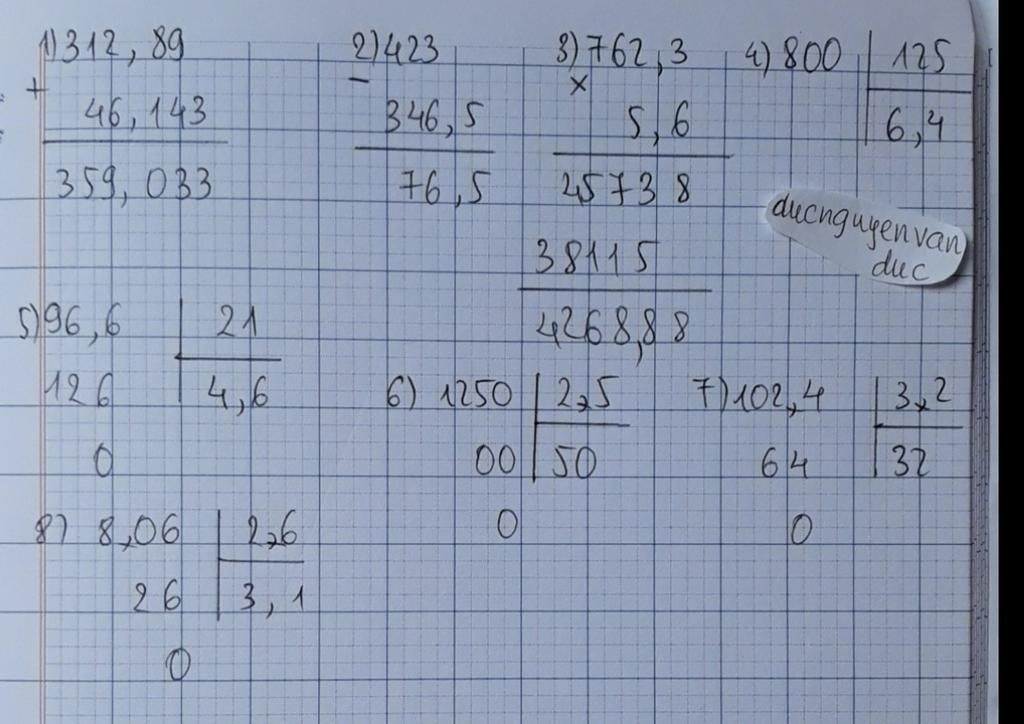 1) 312,89
+
46,143
359,033
2) 423
−
346,5
76,5
3) 762,3
×
5,6
45738
38115
4268,88
4) 800 125
6,4
ducnguyenvan
duc
5) 96,6 21
126 4,6
0
6) 1250 2,5
00 50
0
7) 102,4 3,2
64 32
0
8) 8,06 2,6
26 3,1
0